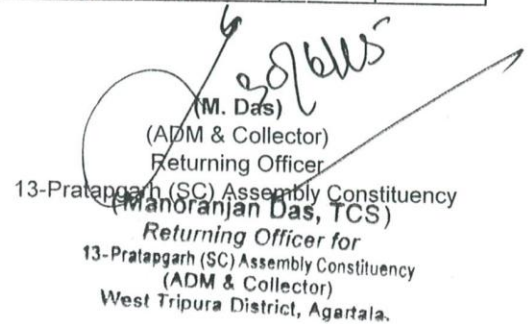 (M. Das)
(ADM & Collector)
Returning Officer
13-Pratapgarh (SC) Assembly Constituency
(Manoranjan Das, TCS)
Returning Officer for
13-Pratapgarh (SC) Assembly Constituency
(ADM & Collector)
West Tripura District, Agartala.